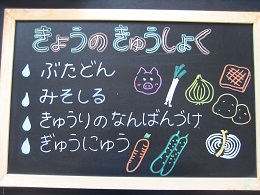 きょうの きゅうしょく
ぶたどん
みそしる
きゅうりのなんばんづけ
ぎゅうにゅう